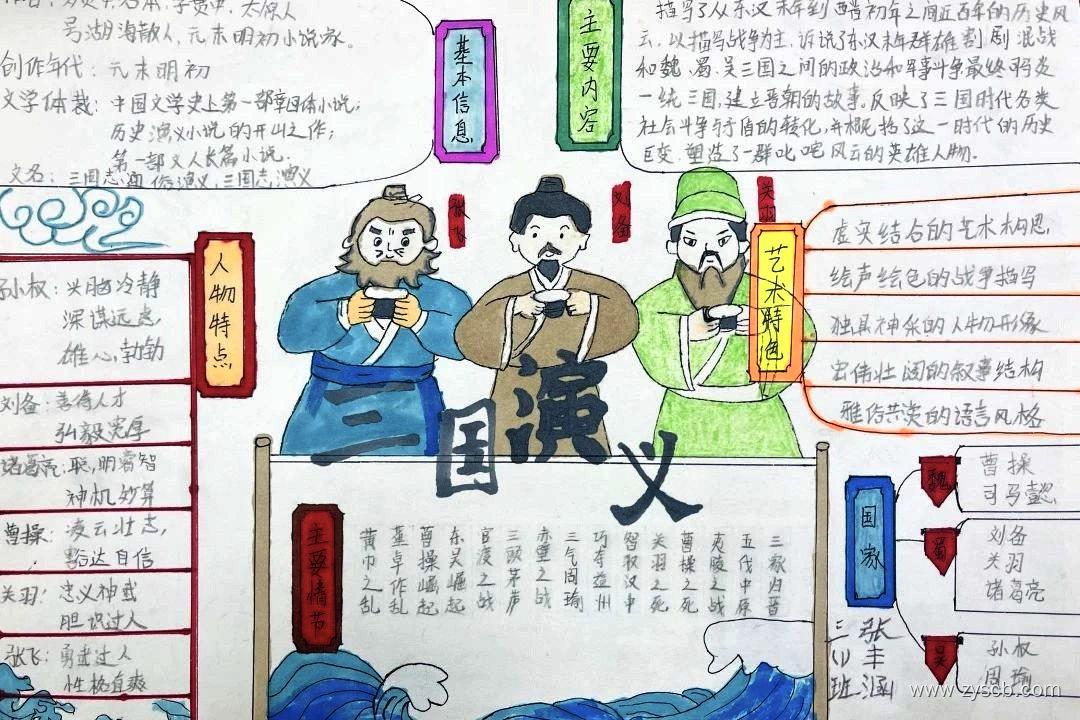 号湖海散人,元末明初小说家。
创作年代:元末明初
文学体裁:中国文学史上第一部章回体小说;
历史演义小说的开山之作;
第一部文人长篇小说.
三国志通俗演义、三国志演义
基本信息
主要内容
描写了从东汉末年到西晋初年之间近百年的历史风
云,以描写战争为主,诉说了东汉末年群雄割剧混战
和魏、蜀、吴三国之间的政治和军事斗争最终司马炎
一统三国,建立晋朝的故事。反映了三国时代各类
社会斗争与矛盾的转化,并概括了这一时代的历史
巨变,塑造了一群叱咤风云的英雄人物.
张飞
刘备
人物特点
孙权:头脑冷静
深谋远虑
雄心勃勃
刘备:善待人才
弘毅宽厚
诸葛亮:聪明睿智
神机妙算
曹操:凌云壮志,
豁达自信
关羽:忠义神武
胆识过人
张飞:勇武过人
性格直爽
艺术特色
虚实结合的艺术构思,
绘声绘色的战争描写
独具神采的人物形像
宏伟壮阔的叙事结构
雅俗共赏的语言风格
三国演义
主要情节
三家归晋
五伐中原
夷陵之战
曹操之死
关羽之死
智取汉中
巧夺益州
三气周瑜
赤壁之战
三顾茅庐
官渡之战
东吴崛起
曹操崛起
董卓作乱
黄巾之乱
国家
魏
曹操
司马懿
蜀
刘备
关羽
诸葛亮
吴
孙权
周瑜
三(1)班
张丰涵
www.zyscb.com